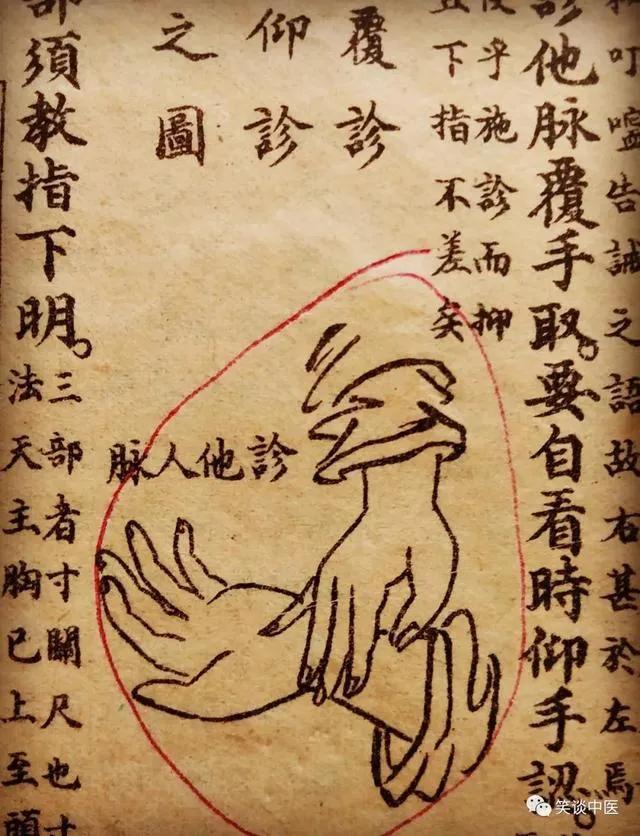 叮嚀告誡之語故右甚於左焉
診他脉覆手取。要自看時仰手認。
乎施診而抑
下指不差矣
覆診
仰診
之圖
診他人脉
部須教指下明。
三部者寸關尺也寸
法天主胸已上至頭
笑谈中医